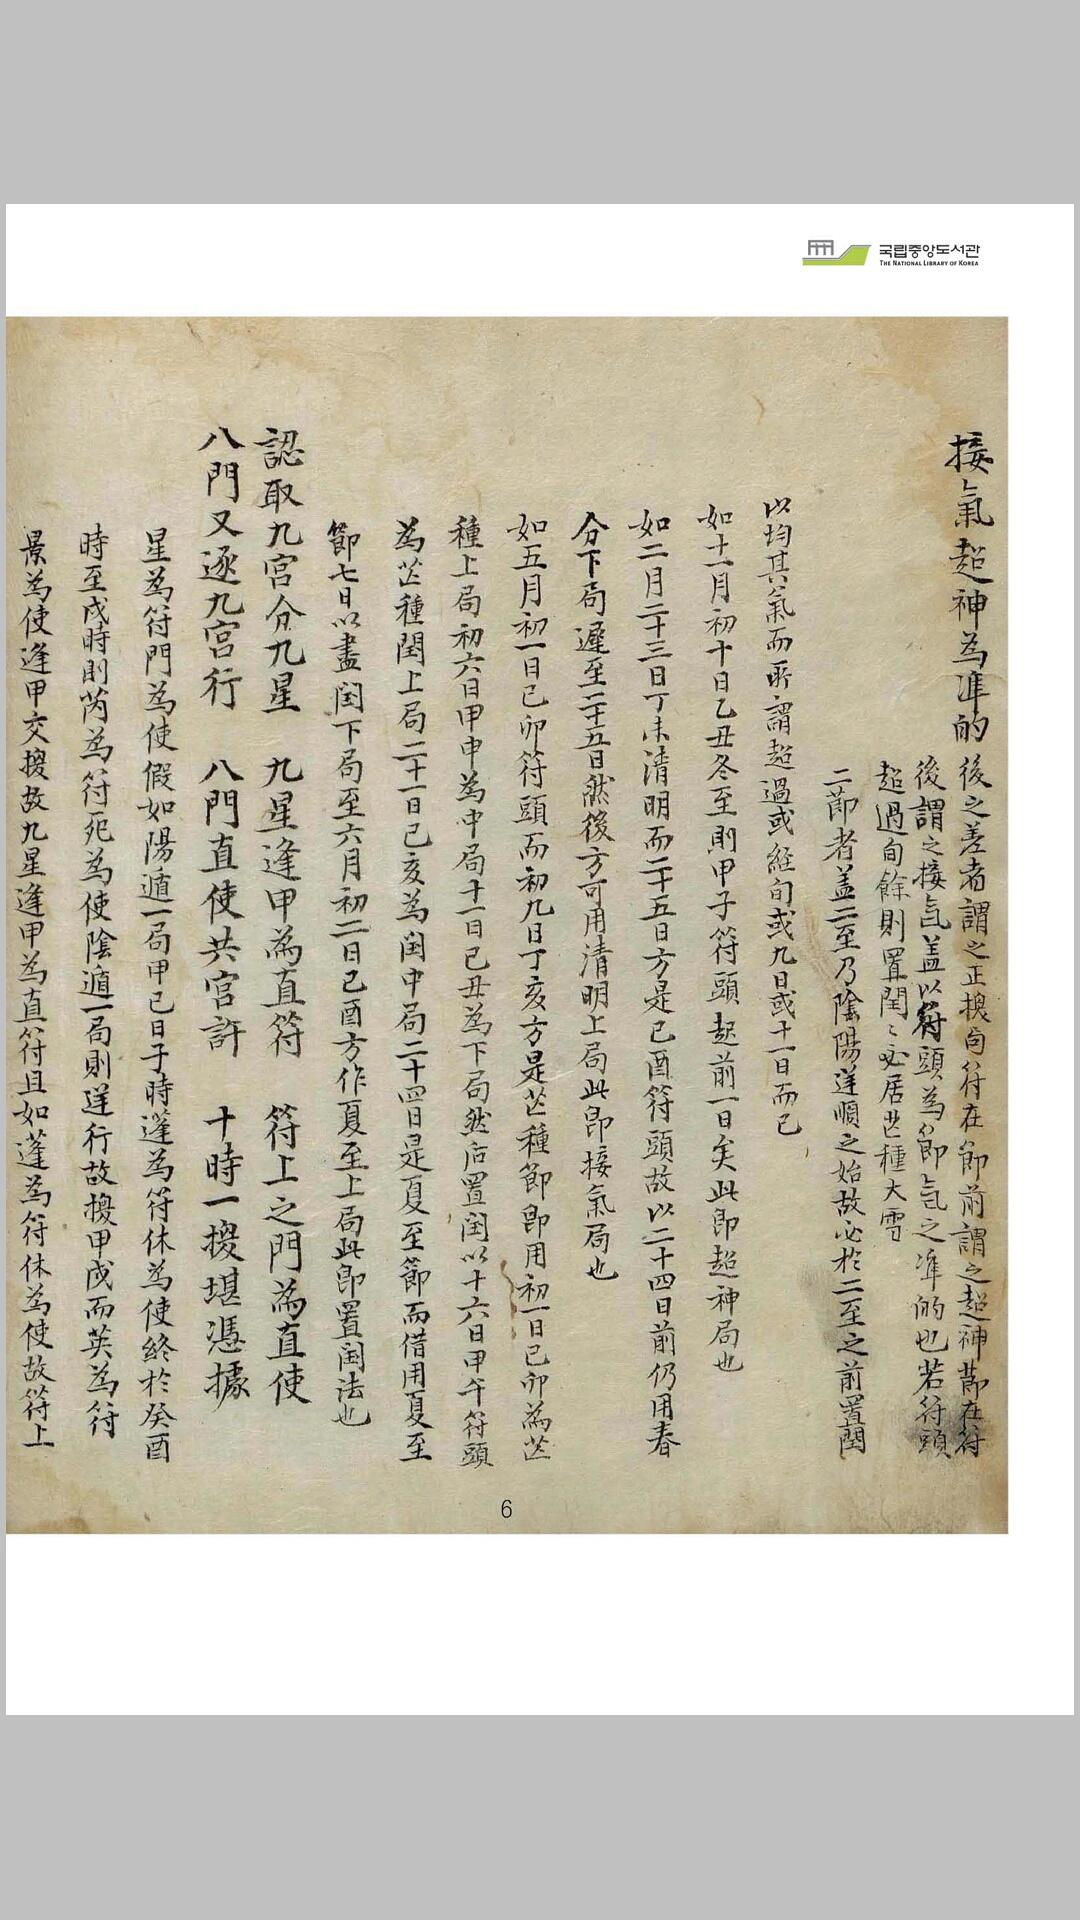 국립중앙도서관
THE NATIONAL LIBRARY OF KOREA
接氣超神為準的
後之差者謂之正授旬符在節前謂之超神節在符
後謂之接氣盖以符頭為節氣之準的也若符頭
超過旬餘則置閏〻必居芒種大雪
二節者盖二至乃陰陽逆順之始故必於二至之前置閏
以均其氣而所謂超過或經旬或九日或十一日而已
如十一月初十日乙丑冬至則甲子符頭起前一日矣此即超神局也
如二月二十三日丁未清明而二十五日方是己酉符頭故以二十四日前仍用春
分下局遲至二十五日然後方可用清明上局此即接氣局也
如五月初一日己卯符頭而初九日丁亥方是芒種節即用初一日己卯為芒
種上局初六日甲申為中局十一日己丑為下局然后置閏以十六日甲午符頭
為芒種閏上局二十一日己亥為閏中局二十四日是夏至節而借用夏至
節七日以盡閏下局至六月初二日己酉方作夏至上局此即置閏法也
認取九宮分九星 九星逢甲為直符 符上之門為直使
八門又逐九宮行 八門直使共宮許 十時一授堪憑據
星為符門為使假如陽遁一局甲己日子時蓬為符休為使終於癸酉
時至戌時則芮為符死為使陰遁一局則逆行故授甲戌而英為符
景為使逢甲交授故九星逢甲為直符且如蓬為符休為使故符上
6